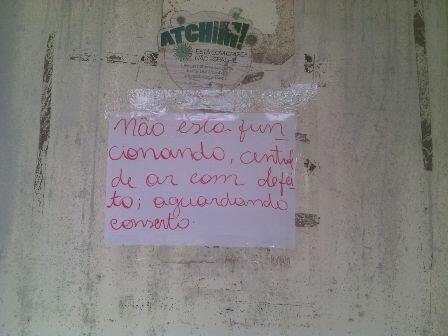 ATCHIM!
ESTÁ COMIGO?
NÃO ESPALHE
Não esta fun-
cionando, central
de ar com defei-
to; aguardando
conserto.